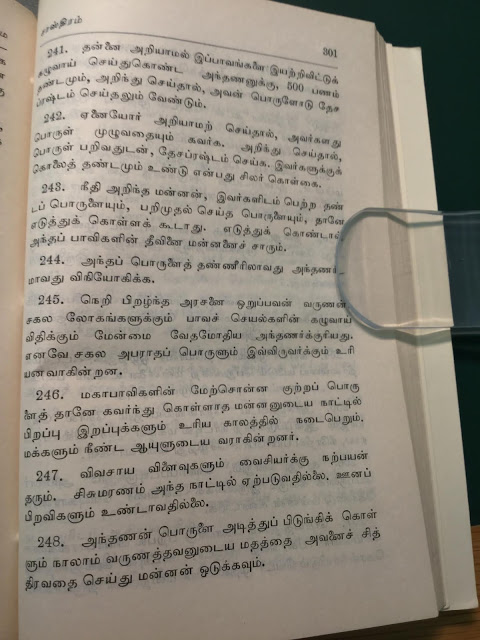 சாஸ்திரம் 301
241. தன்னை அறியாமல் இப்பாவங்களை இயற்றிவிட்டுக்
கழுவாய் செய்துகொண்ட அந்தணனுக்கு, 500 பணம்
தண்டமும், அறிந்து செய்தால், அவன் பொருளோடு தேச
ப்ரஷ்டம் செய்தலும் வேண்டும்.
242. ஏனையோர் அறியாமற் செய்தால், அவர்களது
பொருள் முழுவதையும் கவர்க. அறிந்து செய்தால்,
பொருள் பறிவதுடன், தேசப்ரஷ்டம் செய்க. இவர்களுக்குக்
கொலைத் தண்டமும் உண்டு என்பது சிலர் கொள்கை.
243. நீதி அறிந்த மன்னன், இவர்களிடம் பெற்ற தண்
டப் பொருளையும், பறிமுதல் செய்த பொருளையும், தானே
எடுத்துக் கொள்ளக் கூடாது. எடுத்துக் கொண்டால்
அந்தப் பாவிகளின் தீவினை மன்னனைச் சாரும்.
244. அந்தப் பொருளைத் தண்ணீரிலாவது அந்தணர்
மாவது விநியோகிக்க.
245. நெறி பிறழ்ந்த அரசனை ஒறுப்பவன் வருணன்
சகல லோகங்களுக்கும் பாவச் செயல்களின் கழுவாய்
விதிக்கும் மேன்மை வேதமோதிய அந்தணர்க்குரியது.
எனவே சகல அபராதப் பொருளும் இவ்விருவர்க்கும் உரி
யனவாகின்றன.
246. மகாபாவிகளின் மேற்சொன்ன குற்றப் பொரு
ளைத் தானே கவர்ந்து கொள்ளாத மன்னனுடைய நாட்டில்
பிறப்பு இறப்புக்களும் உரிய காலத்தில் நடைபெறும்.
மக்களும் நீண்ட ஆயுளுடைய வராகின்றனர்.
247. விவசாய விளைவுகளும் வைசியர்க்கு நற்பயன்
தரும். சிசுமரணம் அந்த நாட்டில் ஏற்படுவதில்லை. ஊனப்
பிறவிகளும் உண்டாவதில்லை.
248. அந்தணன் பொருளை அடித்துப் பிடுங்கிக் கொள்
ளும் நாலாம் வருணத்தவனுடைய மதத்தை அவனைச் சித்
திரவதை செய்து மன்னன் ஒடுக்கவும்.